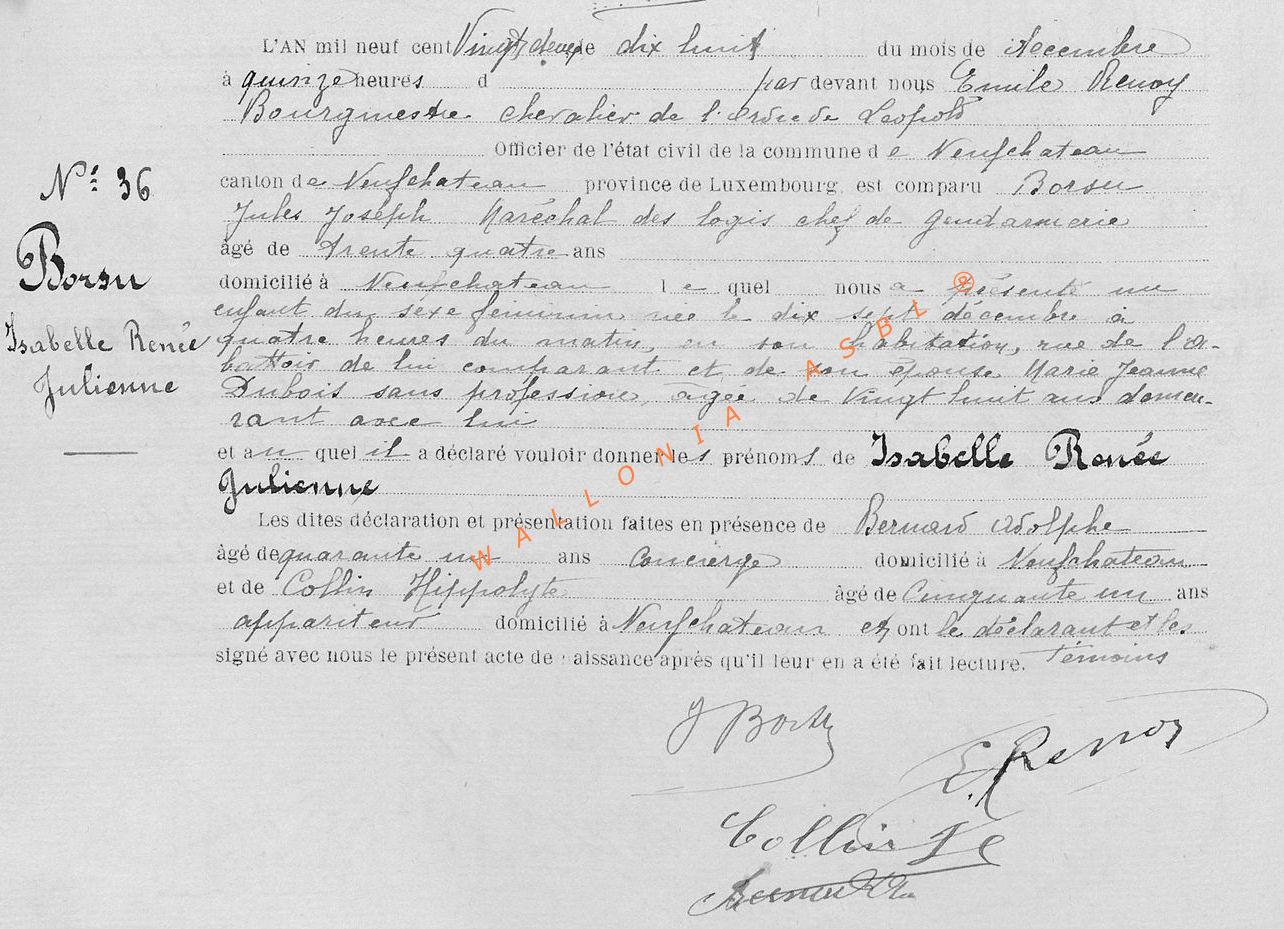 L'AN mil neuf cent Vingt deux le dix huit du mois de décembre
à quinze heures d par devant nous Emile Renoy
Bourgmestre chevalier de l'ordre de Léopold
Officier de l'état civil de la commune de Neufchateau
canton de Neufchateau province de Luxembourg, est comparu Borsu
Jules Joseph Maréchal des logis chef de gendarmerie
âgé de trente quatre ans
domicilié à Neufchateau le quel nous a présenté un
enfant du sexe féminin née le dix sept décembre à
quatre heures du matin, en son habitation, rue de l'a-
battoir de lui comparant et de son épouse Marie Jeanne
Dubois sans profession, agée de Vingt huit ans demeu-
rant avec lui
et au quel il a déclaré vouloir donner les prénoms de Isabelle Renée
Julienne
Les dites déclaration et présentation faites en présence de Bernard Adolphe
âgé de quarante un ans concierge domicilié à Neufchateau
et de Collin Hippolyte âgé de Cinquante un ans
appariteur domicilié à Neufchateau et ont le déclarant et les
signé avec nous le présent acte de naissance après qu'il leur en a été fait lecture. témoins
N° 36
Borsu
Isabelle Renée
Julienne
J Borsu
E Renoy
Collin
WALLONIA ASBL ®